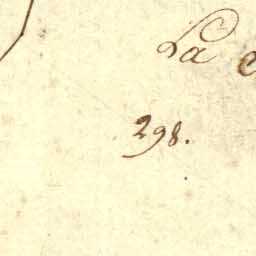 La
298.